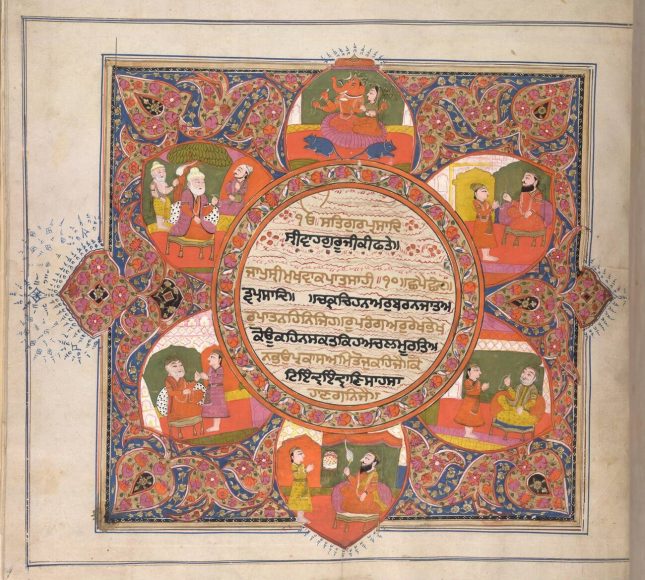 ੧ਓ ਸਤਿਗੁਰਪ੍ਰਸਾਦਿ
ਸ੍ਰੀਵਾਹਗੁਰੂਜੀਕੀਫਤੇ॥
ਜਾਪੁਸ੍ਰੀਮੁਖਵਾਕਪਾਤਸਾਹੀ॥੧੦॥ਛਪੈਛੰਦ॥
ਤ੍ਵਪ੍ਰਸਾਦਿ॥ ॥ਚਕ੍ਰਚਿਹਨਅਰੁਬਰਨਜਾਤਅ
ਰੁਪਾਤਨਹਿਨਿਜਿਹ॥ਰੂਪਰੰਗਅਰੁਰੇਖਭੇਖੁ
ਕੋਊਕਹਿਨਸਕਤਕਿਹਅਚਲਮੂਰਤਿਅ
ਨਭਉਪ੍ਰਕਾਸਅਮਿਤੋਜਕਹਿਜੈਕੋ
ਟਿਇੰਦ੍ਰਇੰਦ੍ਰਾਣਿਸਾਹਸਾ
ਹਾਣਗਨਿਜੈ॥